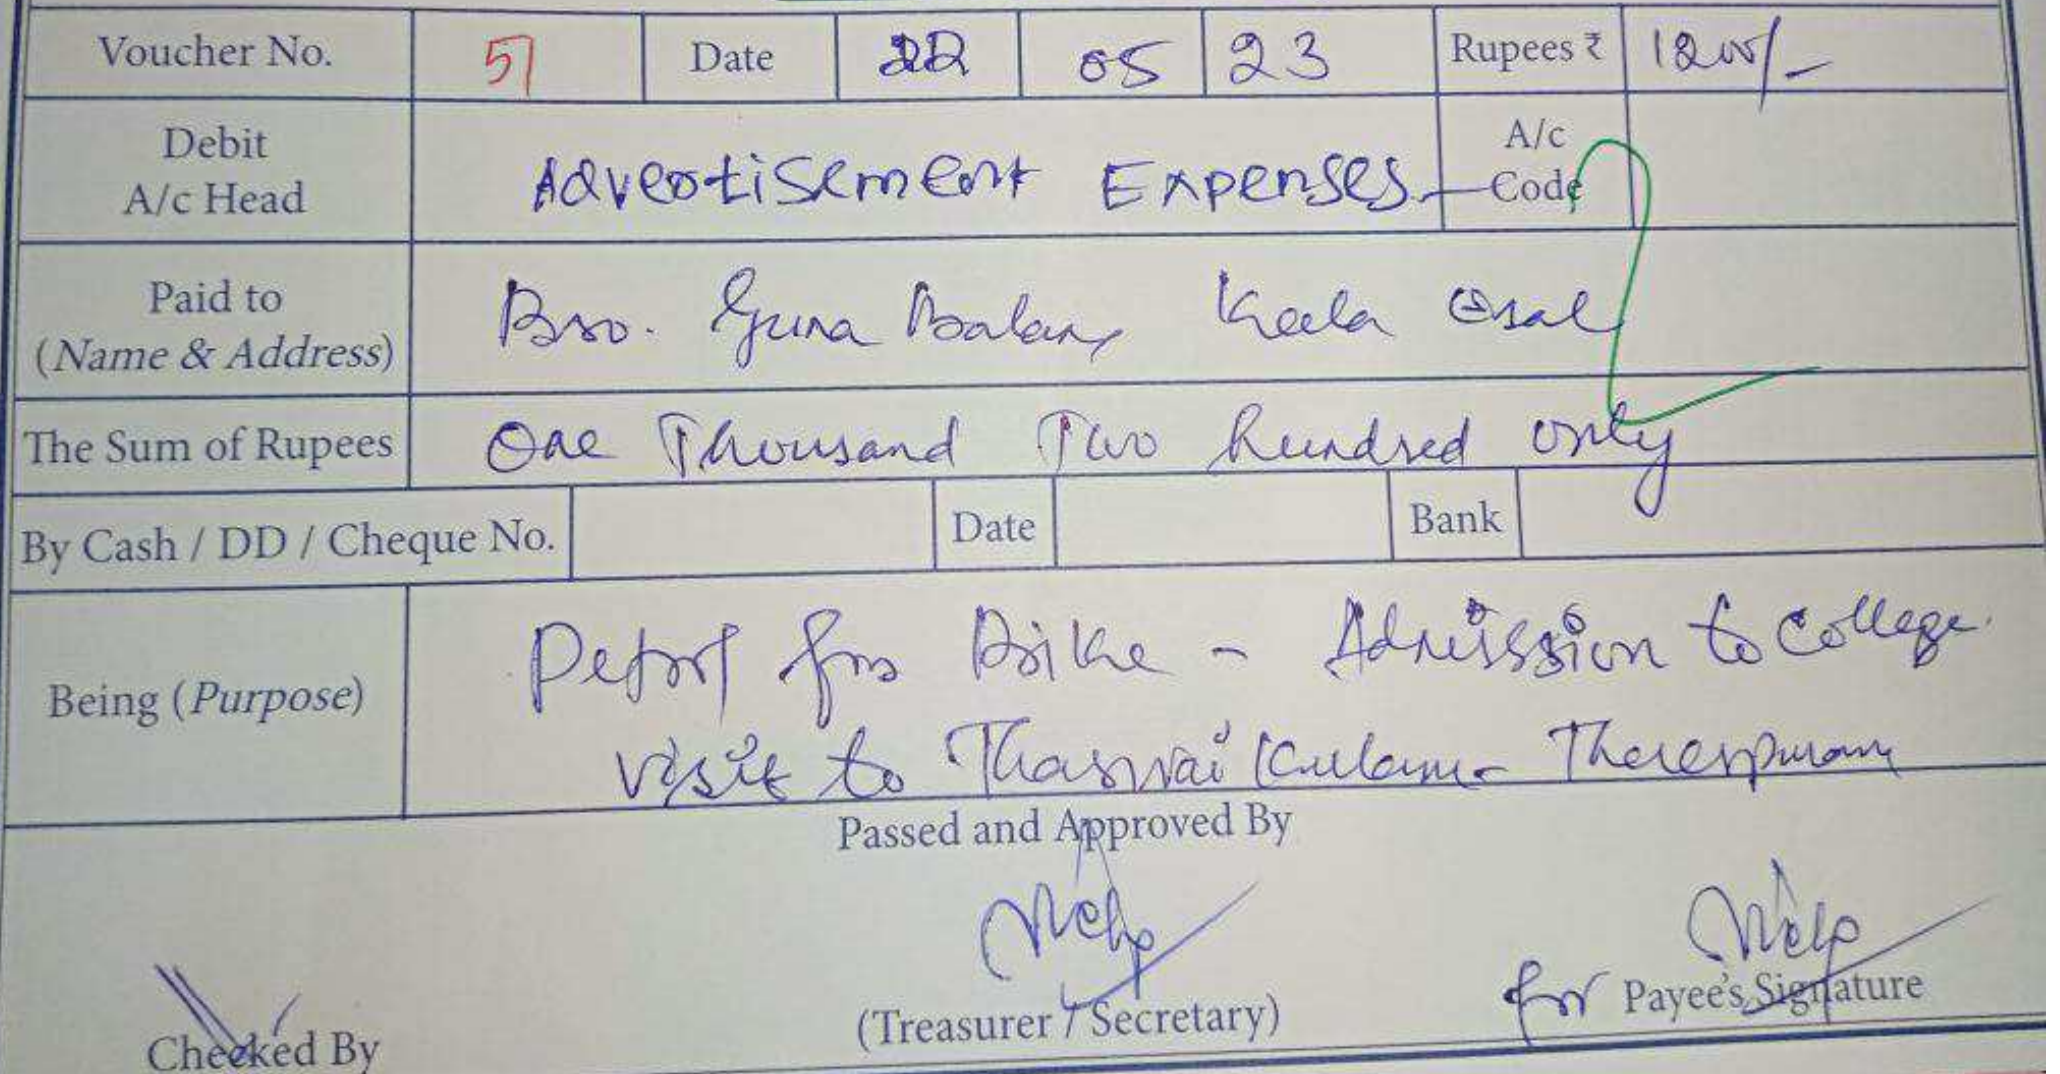 Voucher No. 51 Date 22 05 23 Rupees ₹ 1200/-
Debit A/c Head Advertisement Expenses A/c Code
Paid to (Name & Address) Bro. Guna Balan, Keela Asal
The Sum of Rupees One Thousand Two hundred only
By Cash / DD / Cheque No. Date Bank
Being (Purpose) Petrol for Bike - Admission to College.
visit to Kulam - Therespuram
Passed and Approved By
(Treasurer / Secretary) for Payee's Signature
Checked By